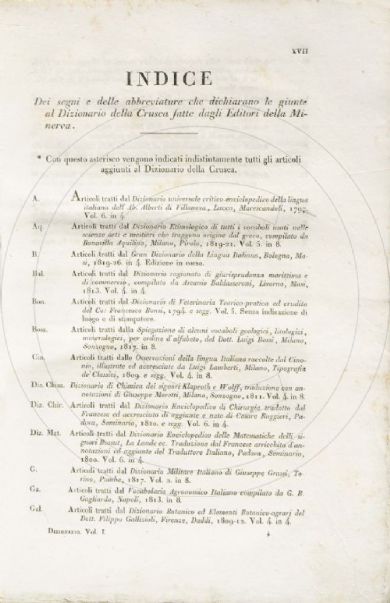 XVII
INDICE
Dei segni e delle abbreviature che dichiarano le giunte
al Dizionario della Crusca fatte dagli Editori della Mi-
nerva.
* Con questo asterisco vengono indicati indistintamente tutti gli articoli
aggiunti al Dizionario della Crusca.
A. Articoli tratti dal Dizionario universale critico enciclopedico della lingua
italiana dell'Ab. Alberti di Villanova, Lucca, Marescandoli, 1797
Vol. 6. in 4.
Aq. Articoli tratti dal Dizionario Etimologico di tutti i vocaboli usati nelle
scienze arti e mestieri che traggono origine dal greco, compilato da
Bonavilla Aquilino, Milano, Pirola, 1819-21. Vol. 5. in 8.
B. Articoli tratti dal Gran Dizionario della Lingua Italiana, Bologna, Ma-
si, 1819-26. in 4. Edizione in corso.
Bal. Articoli tratti dal Dizionario ragionato di giurisprudenza marittima e
di commercio, compilato da Ascanio Baldasseroni, Livorno, Masi,
1813. Vol. 4. in 4.
Bon. Articoli tratti dal Dizionario di Veterinaria Teorico-pratica ed erudita
del Co: Francesco Bonsi, 1794. e segg. Vol. 5. Senza indicazione di
luogo e di stampatore.
Boss. Articoli tratti dalla Spiegazione di alcuni vocaboli geologici, litologici,
mineralogici, per ordine d'alfabeto, del Dott. Luigi Bossi, Milano,
Sonzogno, 1817. in 8.
Cin. Articoli tratti dalle Osservazioni della lingua Italiana raccolte dal Cino-
nio, illustrate ed accresciute da Luigi Lamberti, Milano, Tipografia
de' Classici, 1809. e segg. Vol. 4. in 8.
Diz. Chim. Dizionario di Chimica dei signori Klaproth e Wolff, traduzione con an-
notazioni di Giuseppe Moretti, Milano, Sonzogno, 1811. Vol. 4. in 8.
Diz. Chir. Articoli tratti dal Dizionario Enciclopedico di Chirurgia tradotto dal
Francese ed accresciuto di aggiunte e note da Cesare Ruggieri, Pa-
dova, Seminario, 1810. e segg. Vol. 6. in 4.
Diz. Mat. Articoli tratti dal Dizionario Enciclopedico delle Matematiche delli si-
gnori Bossut, La Lande ec. Traduzione dal Francese arricchita d'an-
notazioni ed aggiunte del Traduttore Italiano, Padova, Seminario,
1800. Vol. 6. in 4.
G. Articoli tratti dal Dizionario Militare Italiano di Giuseppe Grassi, To-
rino, Pomba, 1817. Vol. 2. in 8.
Ga. Articoli tratti dal Vocabolario Agronomico Italiano compilato da G. B.
Gagliardo, Napoli, 1813. in 8.
Gal. Articoli tratti dal Dizionario Botanico ed Elementi Botanico-agrarj del
Dott. Filippo Gallizioli, Firenze, Daddi, 1809-12. Vol. 4. in 4.
Dizionario. Vol. I.